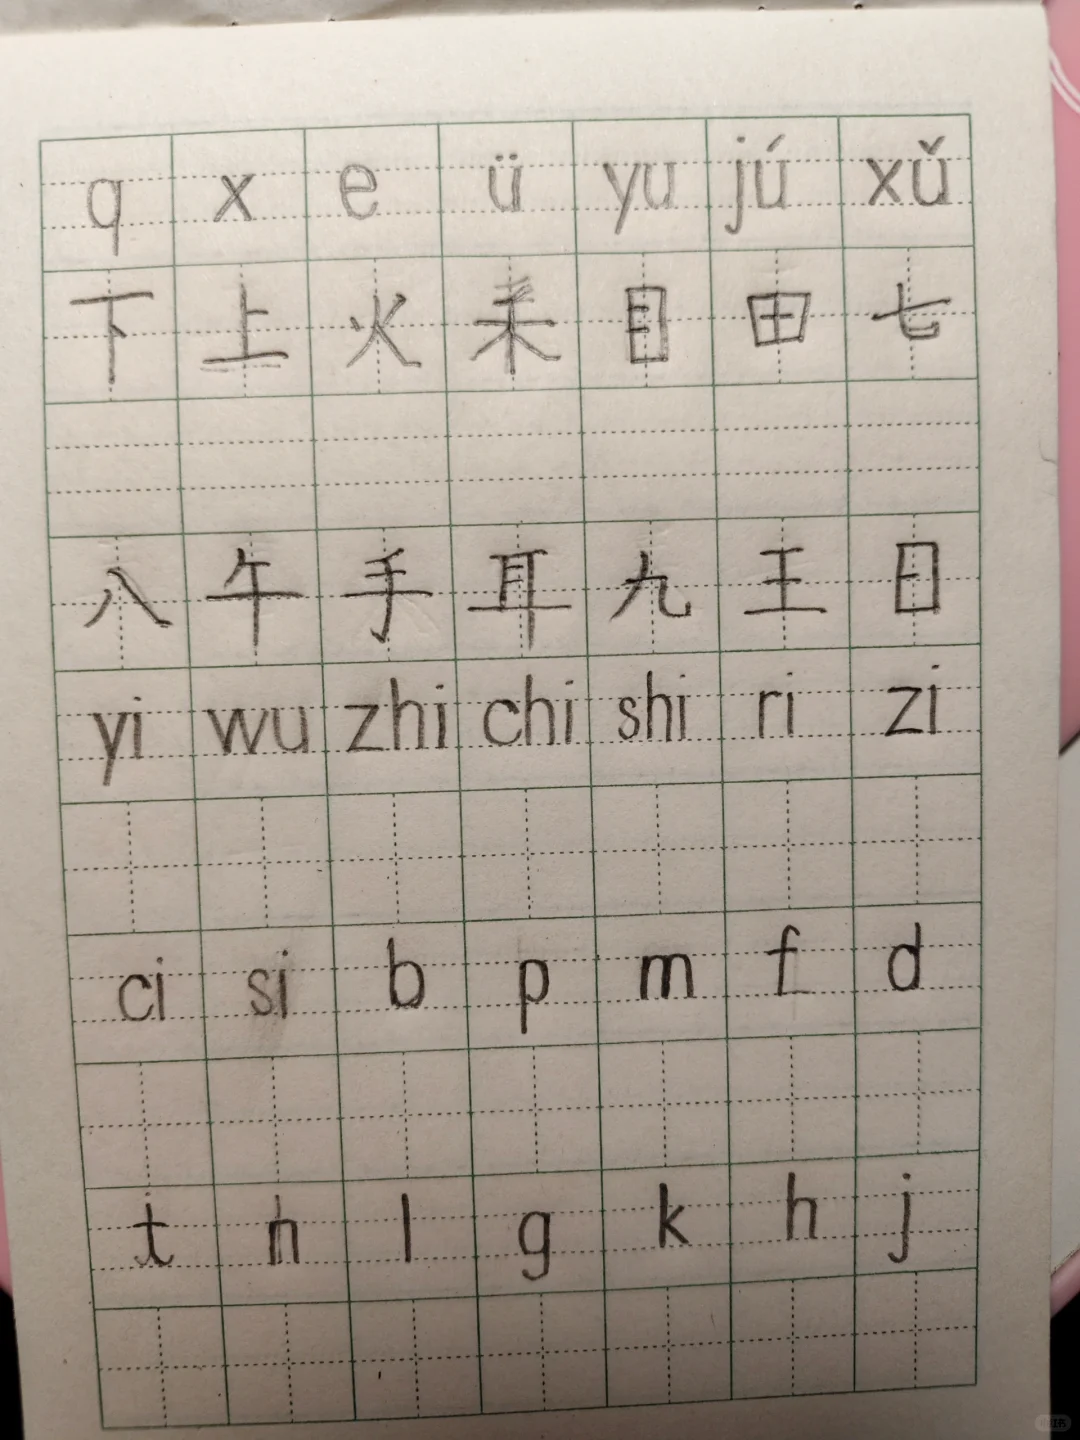 q x e ü yu jú xǔ
下 上 火 禾 目 田 七
八 午 手 耳 九 王 日
yi wu zhi chi shi ri zi
ci si b p m f d
t n l g k h j